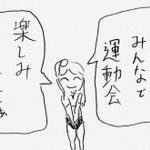 みんなで
運動会
楽しみ